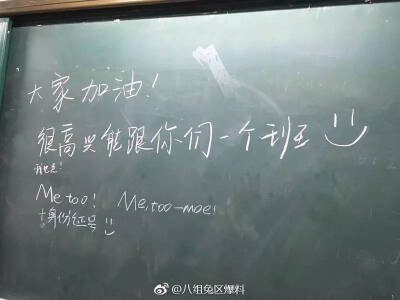 大家加油!
很高兴能跟你们一个班
我也是!
Me too! Me, too—moe!
+身份证号
@八组兔区爆料